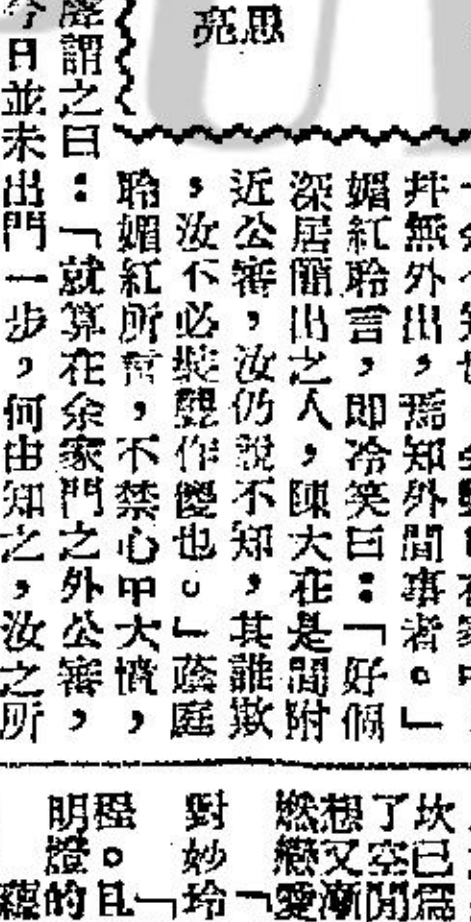 思
亮
幷無外出，焉知外間事者。」
媚紅聆言，即冷笑曰：「好個
深居簡出之人，陳大在是間附
近公審，汝仍說不知，其誰欺
，汝不必裝聾作傻也。」蔭庭
聆媚紅所言，不禁心中大憤，
謂之曰：「就算在余家門之外公審，
今日並未出門一步，何由知之，汝之所
坎已爲
了空閒
想又漸
燃戀愛
「
對妙玲
「
程。且
明燈的
蘊